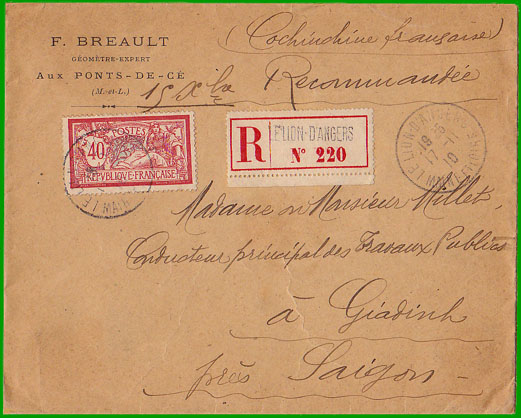 F. BREAULT
GÉOMÈTRE-EXPERT
AUX PONTS-DE-CÉ
(M.-et-L.)
(Cochinchine française)
Recommandée
POSTES
40
RÉPUBLIQUE FRANÇAISE
R
LE LION-D'ANGERS
N° 220
LE LION-D'A
MAINE
19
17 - 11
10
Madame ou Monsieur Millet,
Conducteur principal des Travaux Publics
à Giadinh
près Saigon